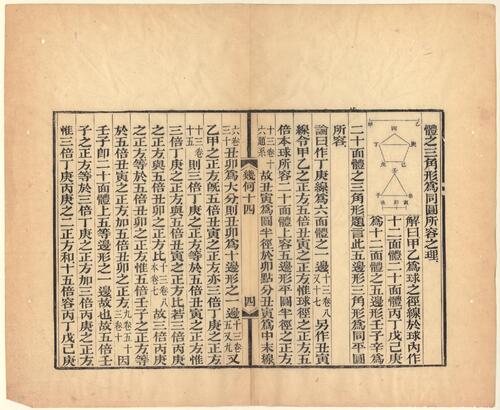 體之三角形爲同圜所容之理
解曰甲乙爲球之徑線於球內作
十二面體二十面體丙丁戊己庚
爲十二面體之五邊形壬子辛爲
二十面體之三角形題言此五邊形三角形爲同平圜
所容
論曰作丁庚線爲六面體之一邊十三卷八又十七另作丑寅
線令甲乙之正方爲五倍丑寅之正方惟球徑之正方五
倍本球所容二十面體上容五邊形平圜半徑之正方
十三卷十六題系故丑寅爲圜半徑於卯點分丑寅爲中末線
幾何十四 四
六卷三十丑卯爲大分則丑卯爲十邊形之一邊十三卷五又九又
甲乙之正方旣五倍丑寅之正方亦三倍丁庚之正方十三卷
十五則三倍丁庚之正方等於五倍丑寅之正方惟
三倍丁庚之正方與五倍丑寅之正方比若三倍丙庚
之正方與五倍丑卯之正方比十三卷八本卷二故三倍丙庚
之正方等於五倍丑卯之正方惟五倍壬子之正方等
於五倍丑寅之正方加五倍丑卯之正方九卷五十三卷十因
壬子卽二十面體上五邊形之一邊故也故五倍壬
子之正方等於三倍丁庚之正方加三倍丙庚之正方
惟三倍丁庚丙庚之二正方和十五倍容丙丁戊己庚